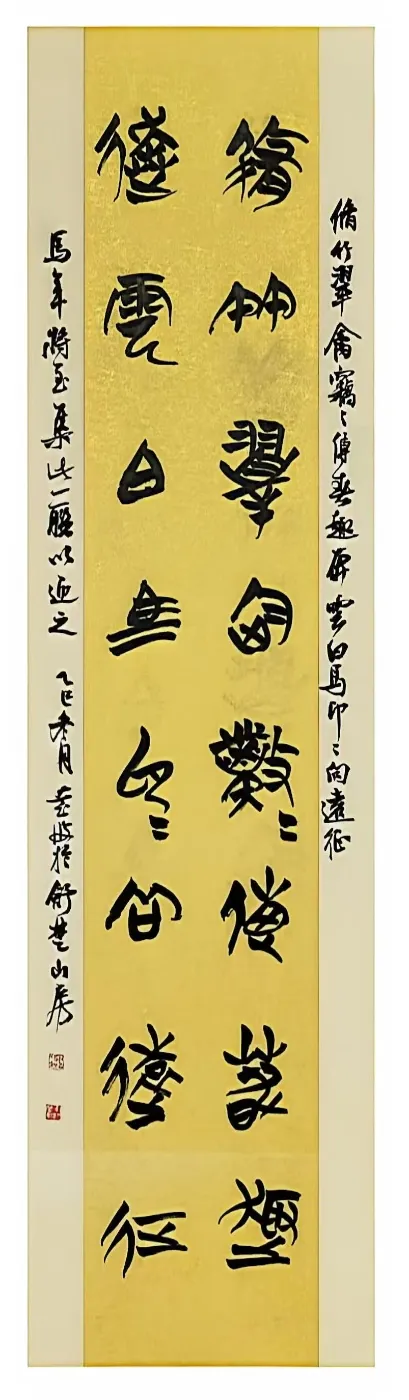 脩竹翠禽竊〻傳春趣雲白馬卬〻向遠征
脩竹翠禽竊〻傳春趣
雲白馬卬〻向遠征
馬年將至集此一聯以迎之 乙巳冬月於舒楚山房